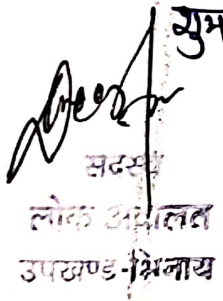 शुभ
सदस्य
लोक अदालत
उपखण्ड-भिनाय